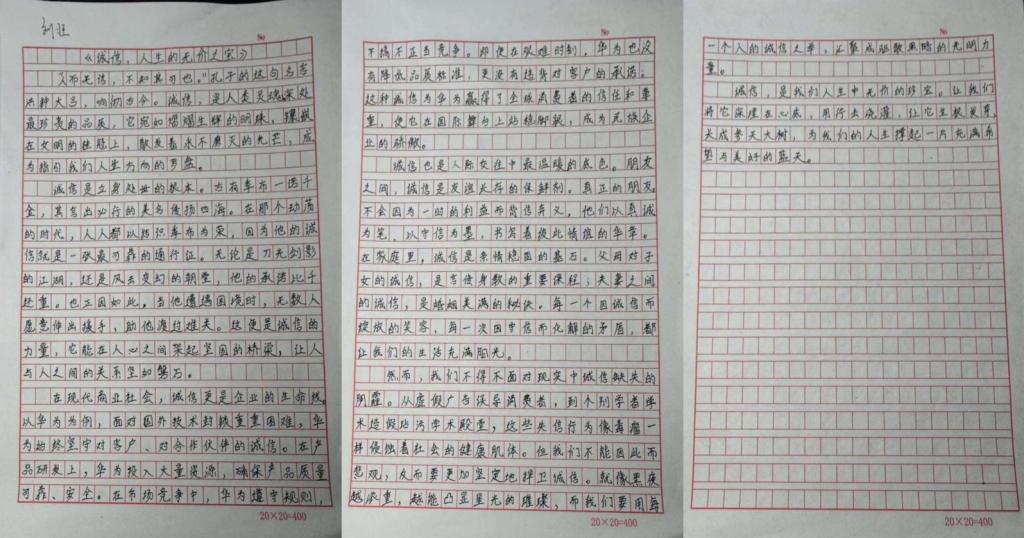 刘旺
No
《诚信，人生的无价之宝》
"人而无信，不知其可也。"孔子的这句名言
洪钟大吕，响彻古今。诚信，是人类灵魂深处
最珍贵的品质，它宛如熠熠生辉的明珠，镶嵌
在文明的桂冠上，散发着永不磨灭的光芒，成
为指引我们人生方向的罗盘。
诚信是立身处世的根本。古有季布一诺千
金，其言出必行的美名传扬四海。在那个动荡
的时代，人人都以结识季布为荣，因为他的诚
信就是一张最可靠的通行证。无论是刀光剑影
的江湖，还是风云变幻的朝堂，他的承诺比千
还重。也正因如此，当他遭遇困境时，无数人
愿意伸出援手，助他渡过难关。这便是诚信的
力量，它能在人心之间架起坚固的桥梁，让人
与人之间的关系坚如磐石。
在现代商业社会，诚信更是企业的生命线。
以华为为例，面对国外技术封锁重重困难，华
为始终坚守对客户、对合作伙伴的诚信。在产
品研发上，华为投入大量资源，确保产品质量
可靠、安全。在市场竞争中，华为遵守规则，
20×20=400
No
不搞不正当竞争。即使在艰难时刻，华为也没
有降低品质标准，更没有违背对客户的承诺。
这种诚信为华为赢得了全球消费者的信任和尊
重，使它在国际舞台上站稳脚跟，成为民族企
业的骄傲。
诚信也是人际交往中最温暖的底色。朋友
之间，诚信是友谊长存的保鲜剂。真正的朋友
不会因为一时的利益而背信弃义，他们以真诚
为笔，以守信为墨，书写着彼此情谊的华章。
在家庭里，诚信是亲情稳固的基石。父母对子
女的诚信，是言传身教的重要课程；夫妻之间
的诚信，是婚姻美满的秘诀。每一个因诚信而
绽放的笑容，每一次因守信而化解的矛盾，都
让我们的生活充满阳光。
然而，我们不得不面对现实中诚信缺失的
阴霾。从虚假广告误导消费者，到个别学者学
术造假玷污学术殿堂，这些失信行为像毒瘤一
样侵蚀着社会的健康肌体。但我们不能因此而
悲观，反而要更加坚定地捍卫诚信。就像黑夜
越浓重，越能凸显星光的璀璨，而我们要用每
20×20=400
No
一个人的诚信之举，汇聚成驱散黑暗的光明力
量。
诚信，是我们人生中无价的珍宝。让我们
将它深埋在心底，用行去浇灌，让它生根发芽，
长成参天大树，为我们的人生撑起一片充满希
望与美好的蓝天。
20×20=400